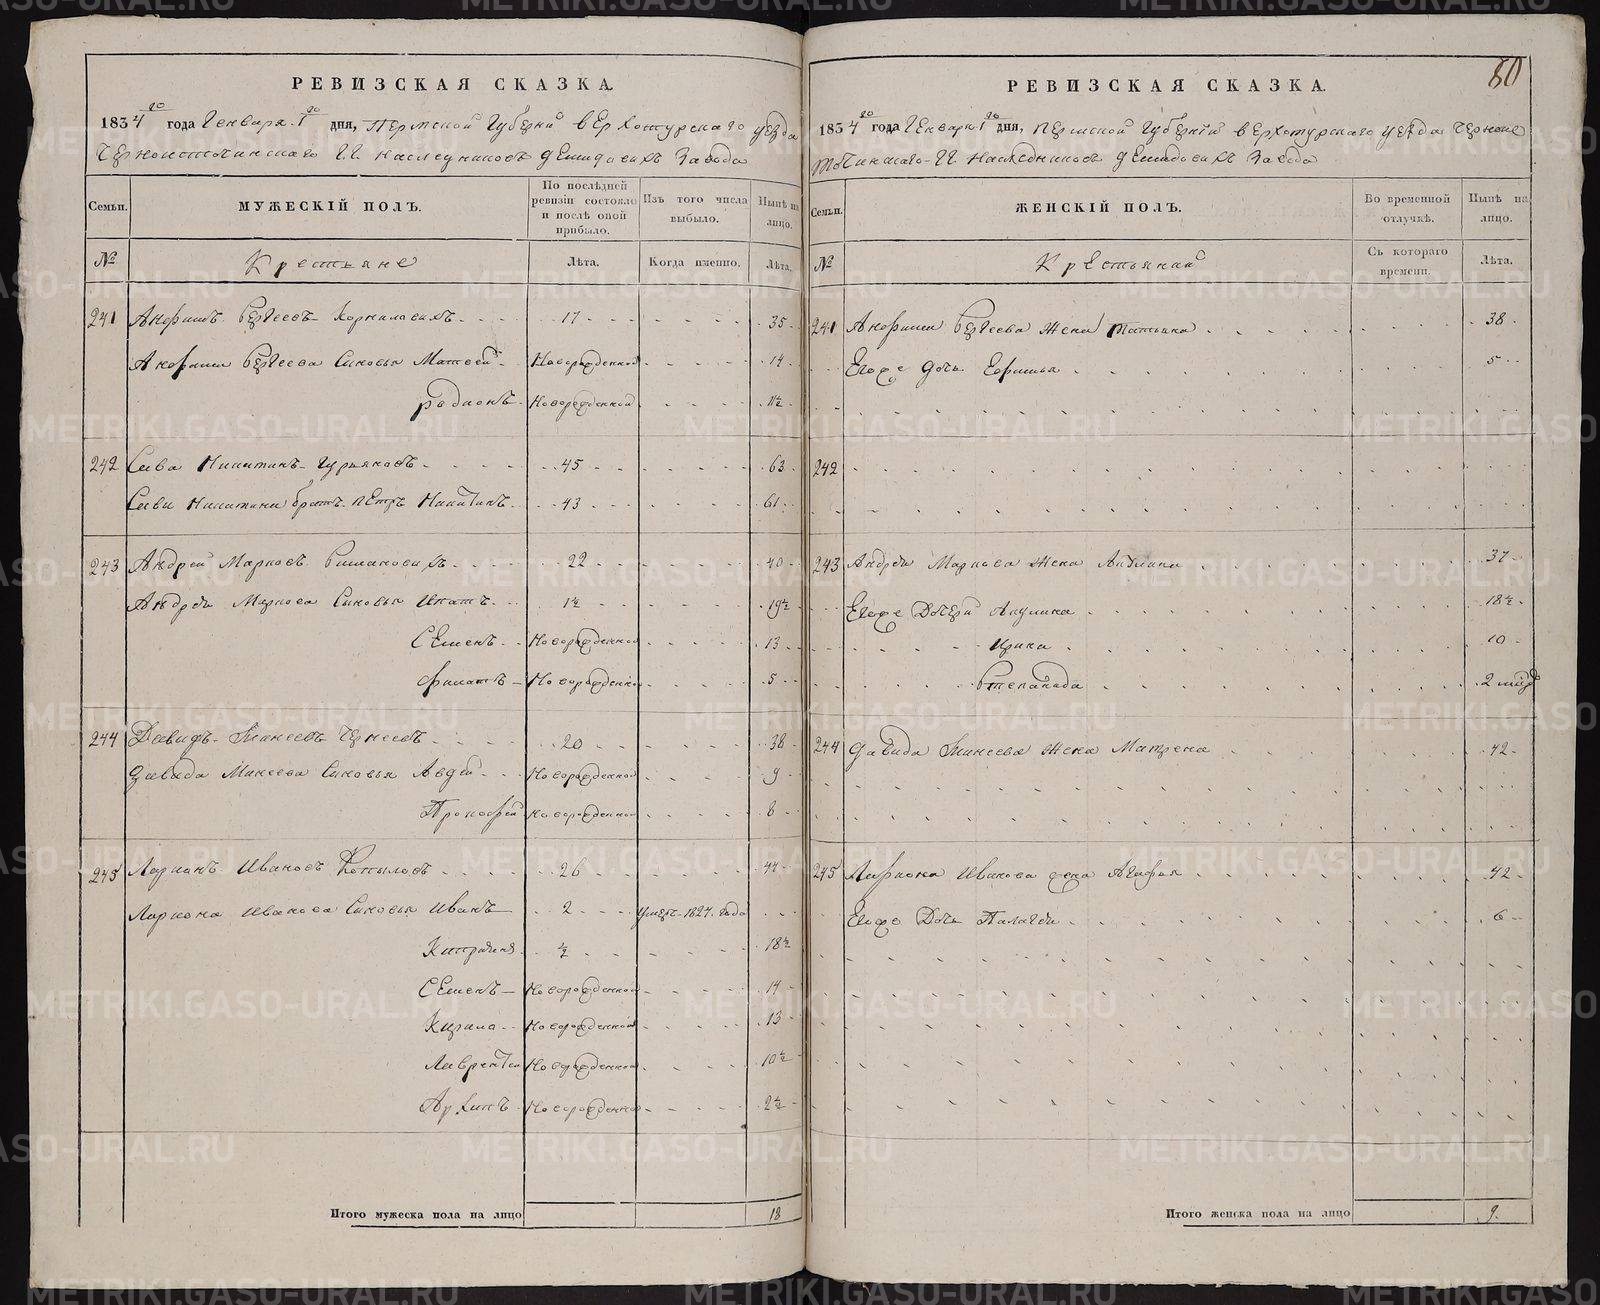 РЕВИЗСКАЯ СКАЗКА.
1834го года Генваря 1го дня, Пермской Губернии Верхотурского уезда
Черноисточинского ГГ. наследниковъ Демидовыхъ Завода
Семьи. МУЖЕСКІЙ ПОЛЪ. По послѣдней ревизіи состояло и послѣ оной прибыло. Изъ того числа выбыло. Нынѣ на лицо.
№ Крестьяне Лѣта. Когда именно. Лѣта.
241 Анфимъ Сергеевъ Корниловыхъ 17 35
Анфима Сергеева Сыновья Матвей Новорожденной 14
Родионъ Новорожденной 1½
242 Сава Никитинъ Гурьяновъ 45 63
Савы Никитина братъ Петръ Никитинъ 43 61
243 Андрей Марковъ 22 40
Андрея Маркова Сыновья Игнатъ 1½ 19½
Семенъ Новорожденной 13
Филатъ Новорожденной 5
244 Давидъ Минеевъ 20 38
Давида Минеева Сыновья Авдей Новорожденной 9
Прокофей Новорожденной 8
245 Ларионъ Ивановъ Копыловъ 26 44
Лариона Иванова Сыновья Иванъ 2 умеръ 1827. года
½ 18½
Семенъ Новорожденной 14
Кирила Новорожденной 13
Лаврентей Новорожденной 10½
Архипъ Новорожденной 2½
Итого мужеска пола на лицо 18
80
РЕВИЗСКАЯ СКАЗКА.
1834го года Генваря 1го дня, Пермской Губернии Верхотурского уезда Черноис
точинского ГГ. наследниковъ Демидовыхъ Завода
Семьи. ЖЕНСКІЙ ПОЛЪ. Во временной отлучкѣ. Нынѣ на лицо.
№ Крестьянки Съ котораго времени. Лѣта.
241 Анфима Сергеева Жена Татьяна 38
Егоже Дочь Ефимья 5
242
243 Андрея Маркова Жена 37
Егоже Дочери Акулина 18½
Ирина 10
Степанида 2
244 Давида Минеева Жена Матрена 42
245 Лариона Иванова жена Агафья 42
Егоже Дочь Палагея 6
Итого женска пола на лицо 9.
METRIKI.GASO-URAL.RU